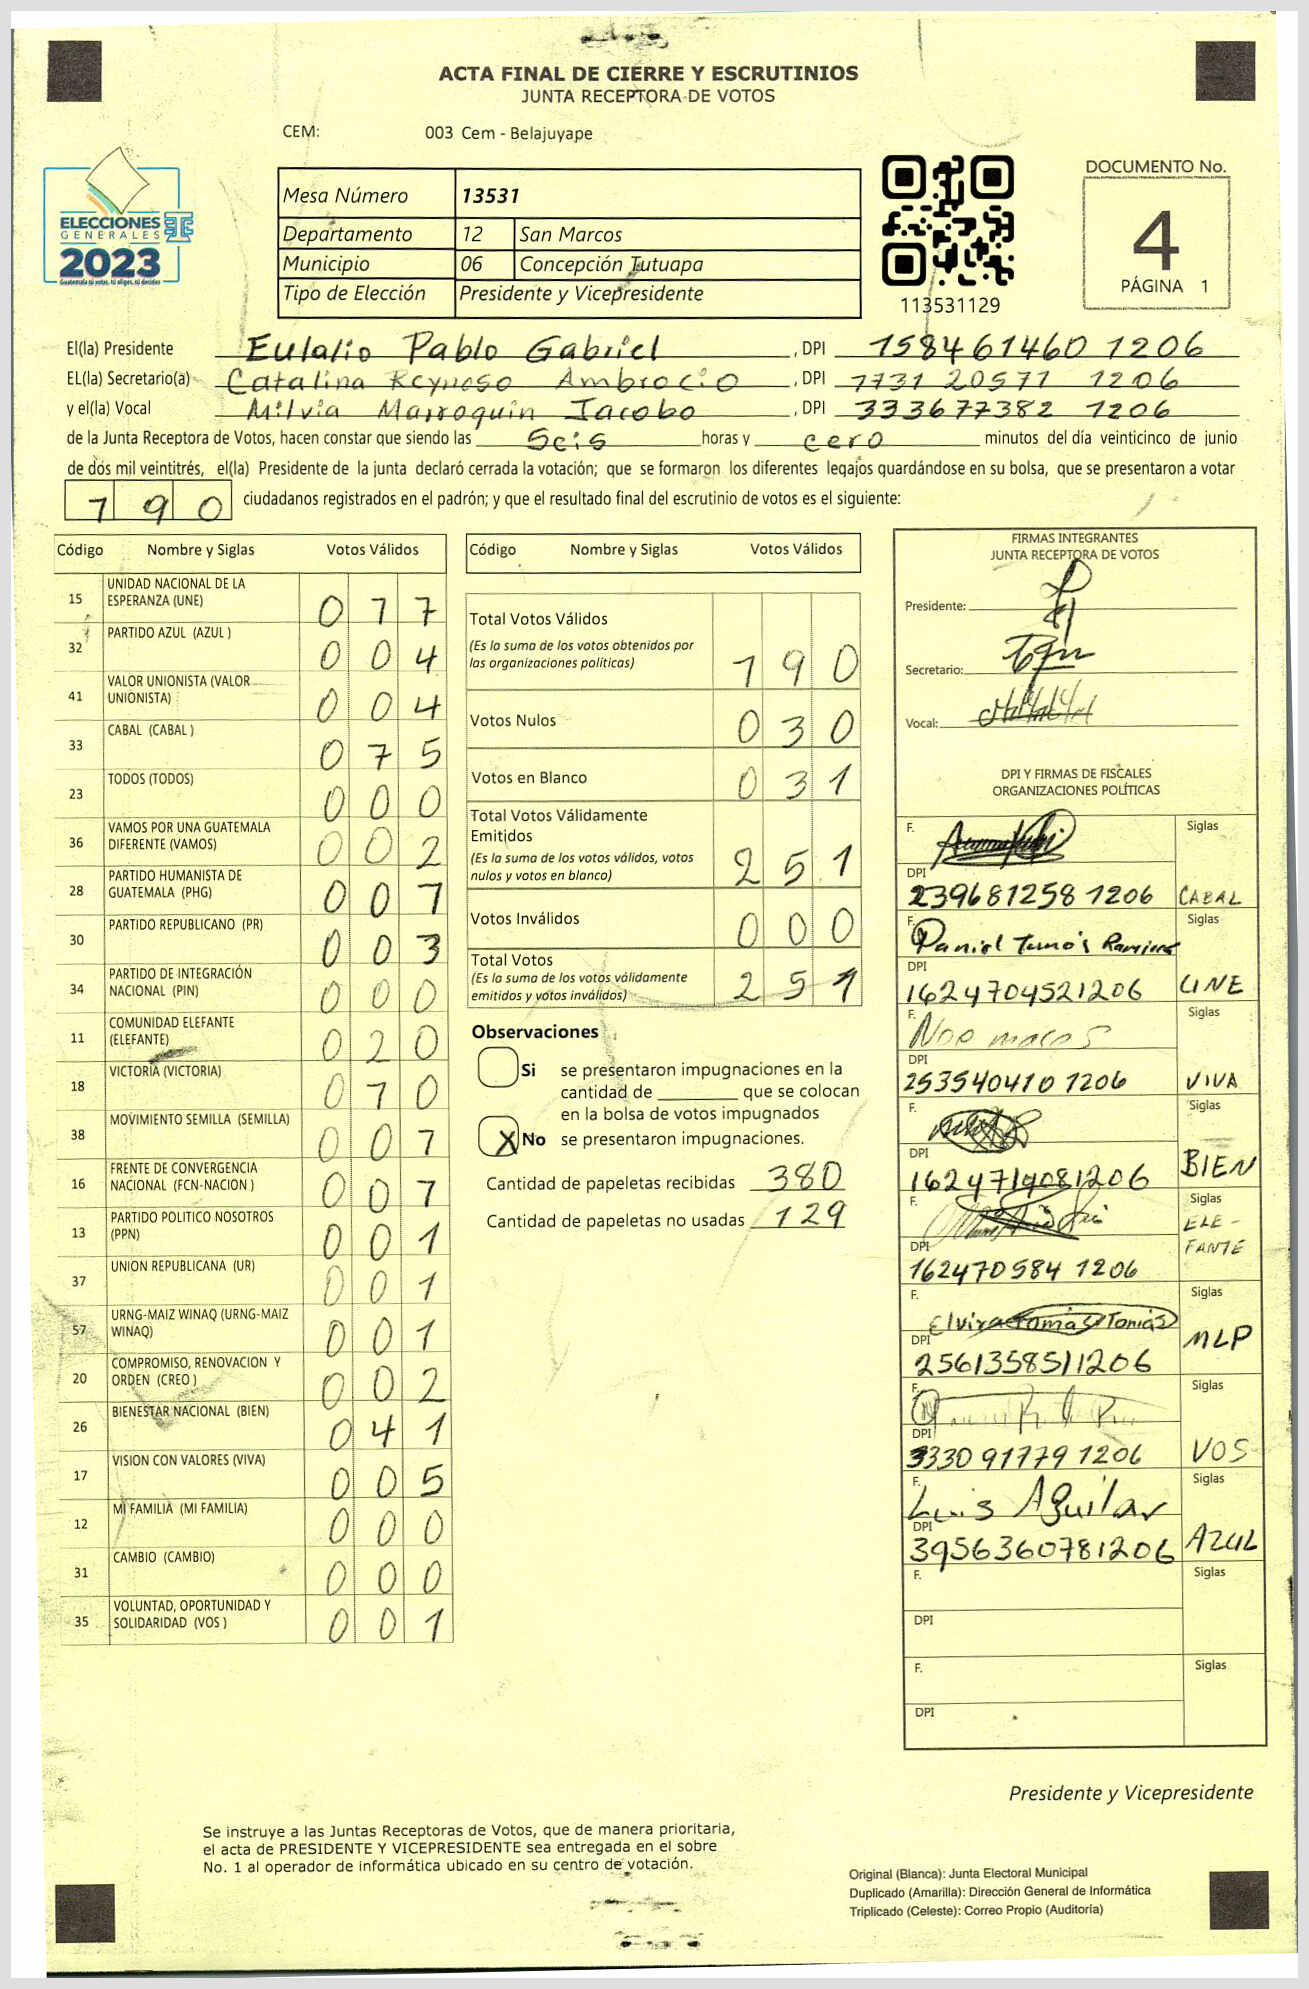 ACTA FINAL DE CIERRE Y ESCRUTINIOS
JUNTA RECEPTORA DE VOTOS
CEM: 003 Cem - Belajuyape
ELECCIONES
GENERALES
2023
Guatemala tú votas, tú eliges, tú decides
TSE
Mesa Número 13531
Departamento 12 San Marcos
Municipio 06 Concepción Tutuapa
Tipo de Elección Presidente y Vicepresidente
113531129
DOCUMENTO No.
4
PÁGINA 1
El(la) Presidente Eulalio Pablo Gabriel , DPI 158461460 1206
EL(la) Secretario(a) Catalina Reynoso Ambrocio , DPI 7731 20571 1206
y el(la) Vocal Milvia Marroquin Jacobo , DPI 333677382 1206
de la Junta Receptora de Votos, hacen constar que siendo las Seis horas y cero minutos del día veinticinco de junio
de dos mil veintitrés, el(la) Presidente de la junta declaró cerrada la votación; que se formaron los diferentes legajos guardándose en su bolsa, que se presentaron a votar
790 ciudadanos registrados en el padrón; y que el resultado final del escrutinio de votos es el siguiente:
Código Nombre y Siglas Votos Válidos
15 UNIDAD NACIONAL DE LA ESPERANZA (UNE) 0 7 7
32 PARTIDO AZUL (AZUL ) 0 0 4
41 VALOR UNIONISTA (VALOR UNIONISTA) 0 0 4
33 CABAL (CABAL ) 0 7 5
23 TODOS (TODOS) 0 0 0
36 VAMOS POR UNA GUATEMALA DIFERENTE (VAMOS) 0 0 2
28 PARTIDO HUMANISTA DE GUATEMALA (PHG) 0 0 7
30 PARTIDO REPUBLICANO (PR) 0 0 3
34 PARTIDO DE INTEGRACIÓN NACIONAL (PIN) 0 0 0
11 COMUNIDAD ELEFANTE (ELEFANTE) 0 2 0
18 VICTORIA (VICTORIA) 0 7 0
38 MOVIMIENTO SEMILLA (SEMILLA) 0 0 7
16 FRENTE DE CONVERGENCIA NACIONAL (FCN-NACION ) 0 0 7
13 PARTIDO POLITICO NOSOTROS (PPN) 0 0 1
37 UNION REPUBLICANA (UR) 0 0 1
57 URNG-MAIZ WINAQ (URNG-MAIZ WINAQ) 0 0 1
20 COMPROMISO, RENOVACION Y ORDEN (CREO ) 0 0 2
26 BIENESTAR NACIONAL (BIEN) 0 4 1
17 VISION CON VALORES (VIVA) 0 0 5
12 MI FAMILIA (MI FAMILIA) 0 0 0
31 CAMBIO (CAMBIO) 0 0 0
35 VOLUNTAD, OPORTUNIDAD Y SOLIDARIDAD (VOS ) 0 0 1
Código Nombre y Siglas Votos Válidos
Total Votos Válidos
(Es la suma de los votos obtenidos por
las organizaciones políticas) 1 9 0
Votos Nulos 0 3 0
Votos en Blanco 0 3 1
Total Votos Válidamente
Emitidos
(Es la suma de los votos válidos, votos
nulos y votos en blanco) 2 5 1
Votos Inválidos 0 0 0
Total Votos
(Es la suma de los votos válidamente
emitidos y votos inválidos) 2 5 1
Observaciones
Si se presentaron impugnaciones en la
cantidad de ________ que se colocan
en la bolsa de votos impugnados
X No se presentaron impugnaciones.
Cantidad de papeletas recibidas 380
Cantidad de papeletas no usadas 129
FIRMAS INTEGRANTES
JUNTA RECEPTORA DE VOTOS
Presidente:
Secretario:
Vocal:
DPI Y FIRMAS DE FISCALES
ORGANIZACIONES POLÍTICAS
F. Siglas
DPI
239681258 1206 CABAL
F. Daniel Tomás Ramirez Siglas
DPI
1624704521206 UNE
F. Siglas
DPI
253540410 1206 VIVA
F. Siglas
DPI
1624714081206 BIEN
F. Siglas
ELE-
FANTE
DPI
162470584 1206
F. Elvira Tomás Tomás Siglas
DPI
2561358511206 MLP
F. Siglas
DPI
3330 91779 1206 VOS
F. Luis Aguilar Siglas
DPI
3956360781206 AZUL
F. Siglas
DPI
F. Siglas
DPI
Presidente y Vicepresidente
Se instruye a las Juntas Receptoras de Votos, que de manera prioritaria,
el acta de PRESIDENTE Y VICEPRESIDENTE sea entregada en el sobre
No. 1 al operador de informática ubicado en su centro de votación.
Original (Blanca): Junta Electoral Municipal
Duplicado (Amarilla): Dirección General de Informática
Triplicado (Celeste): Correo Propio (Auditoría)